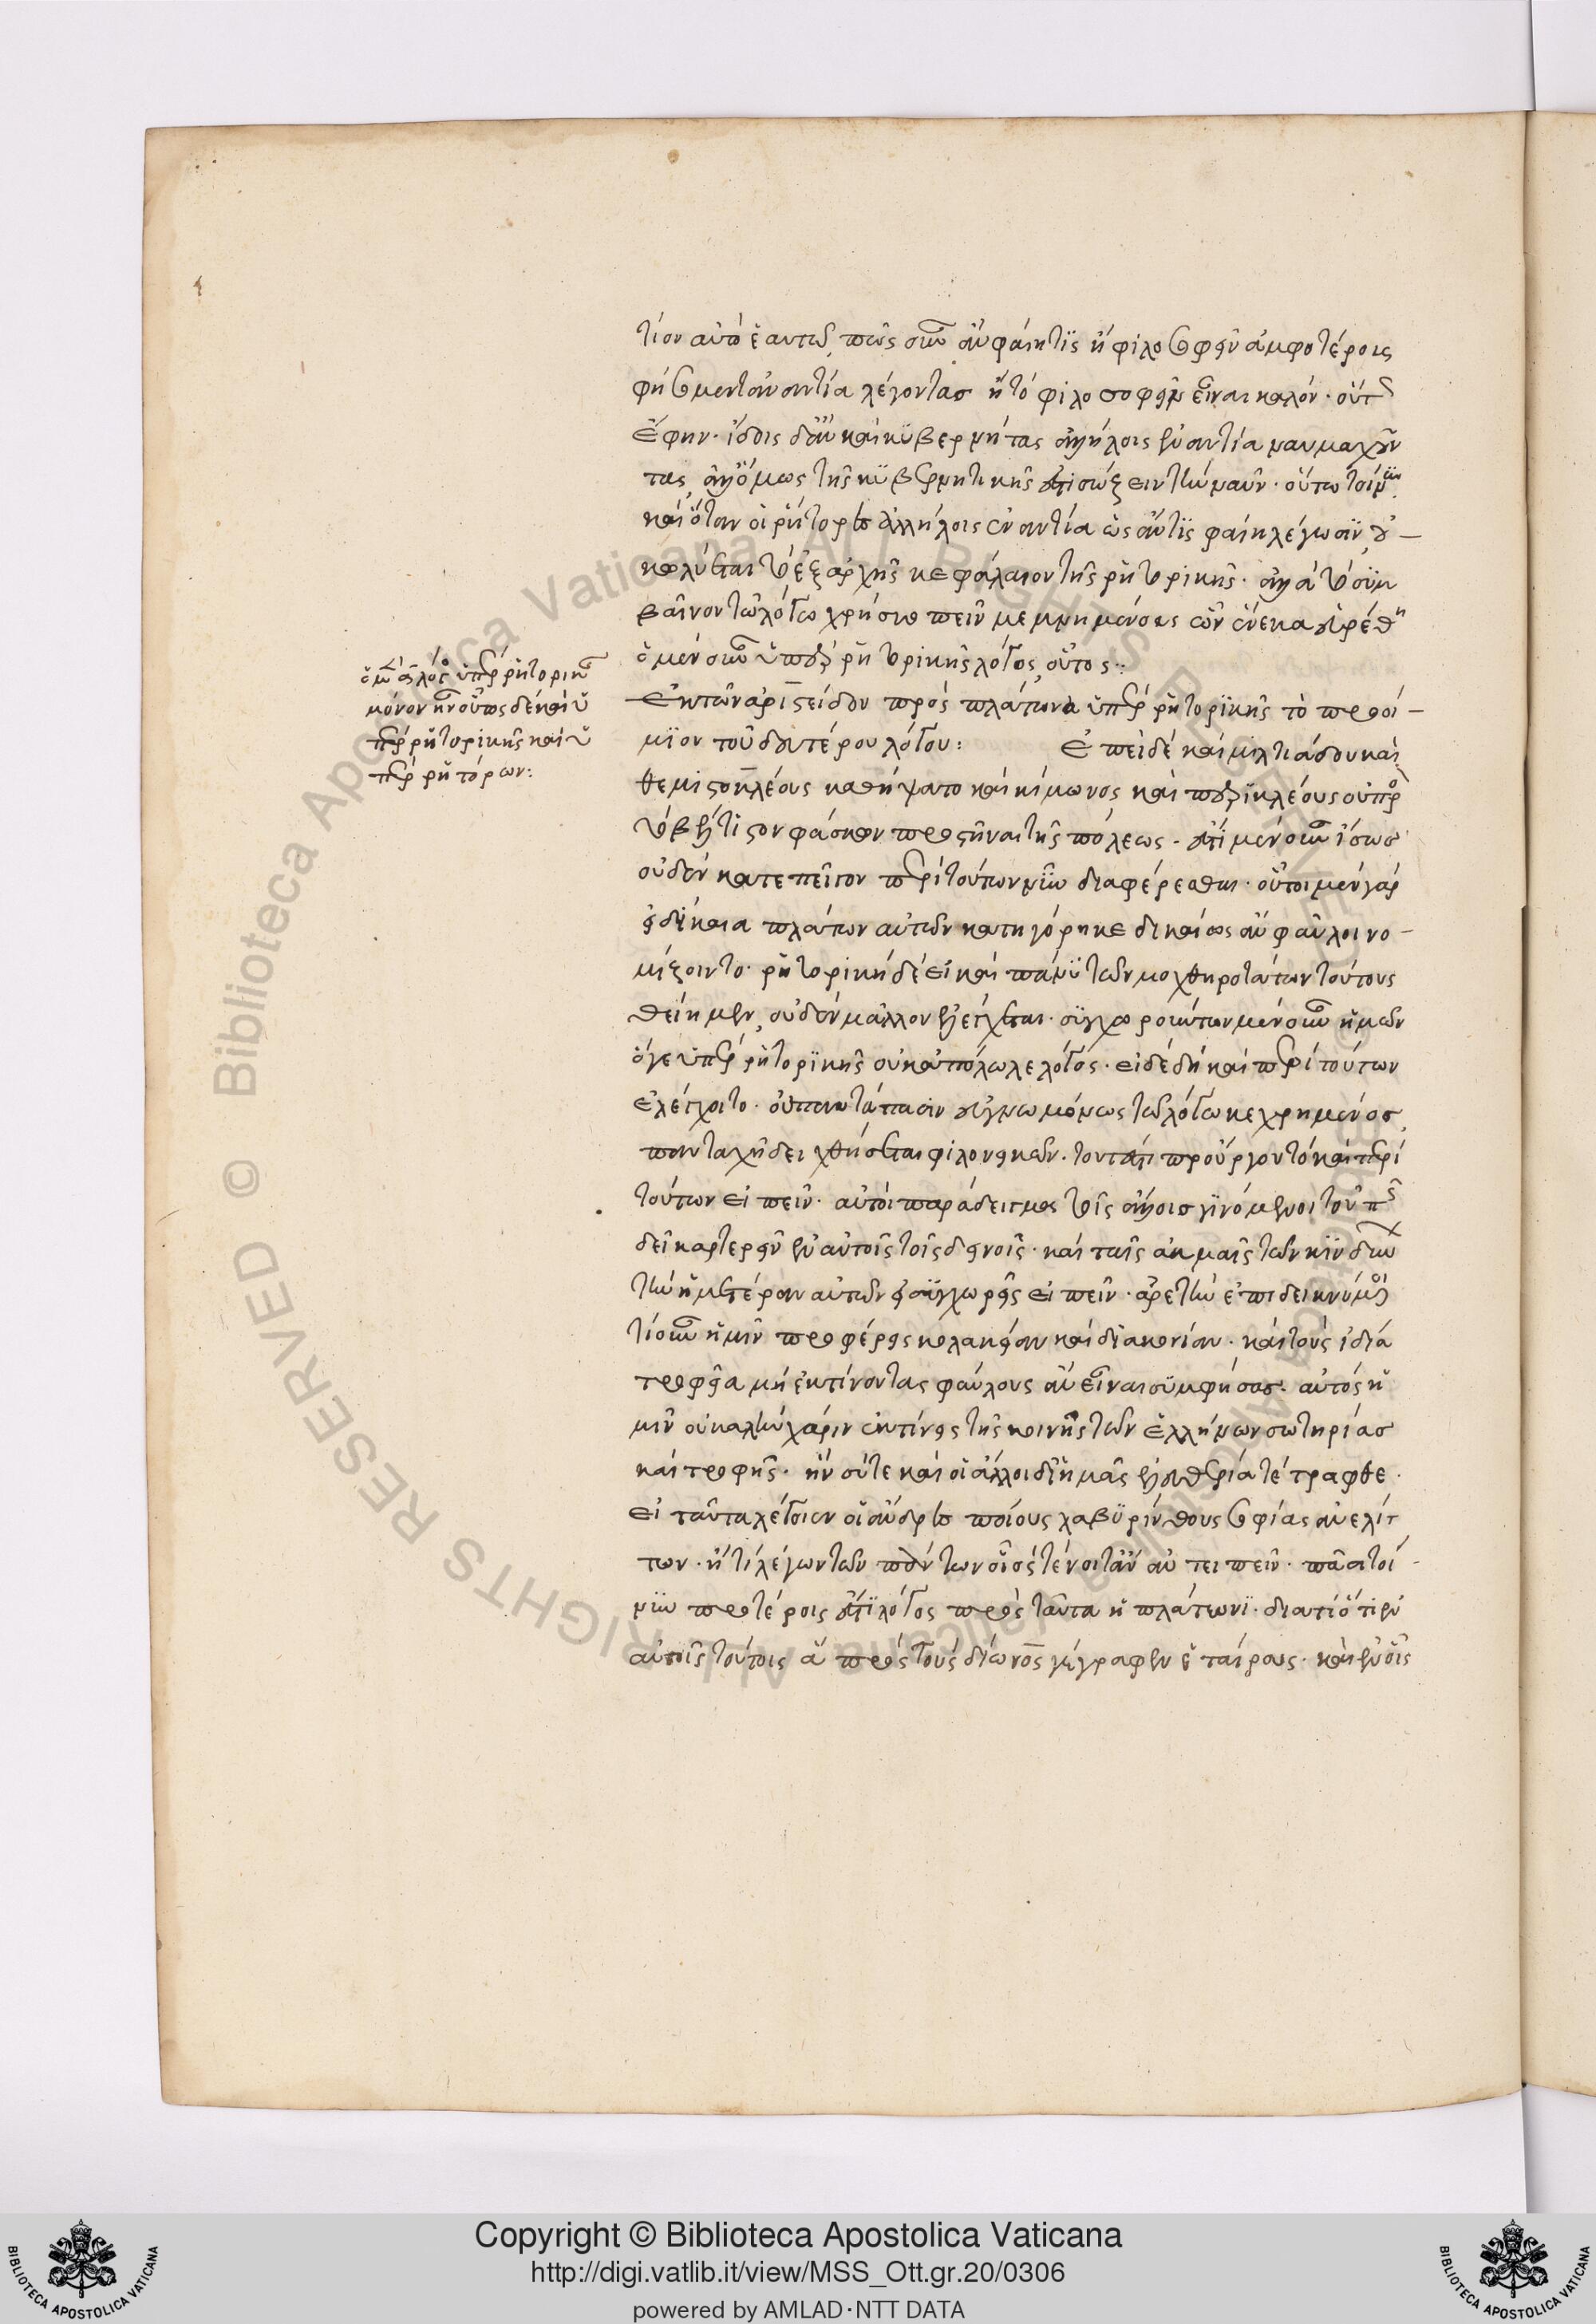 τίον αὐτὸ ἑαυτῶ, πῶς οὖν ἂν φαίη τίς ἢ φιλοσοφεῖν ἀμφοτέρους
φήσομεν τἀναντία λέγοντας ἢ τὸ φιλοσοφεῖν εἶναι καλόν. οὕτως
ἔφην. ἴδοις δ' ἂν καὶ κυβερνήτας ἀλλήλοις ἐναντία ναυμαχοῦν
τας, ἀλλ' ὅμως τῆς κυβερνητικῆς ἐστι σώζειν τὴν ναῦν. οὕτω τοίνυν
καὶ ὅταν οἱ ῥήτορες ἀλλήλοις ἐναντία ὡς ἄν τις φαίη λέγωσιν, οὐ
κωλύεται τὸ ἐξ ἀρχῆς κεφάλαιον τῆς ῥητορικῆς. ἀλλὰ τὸ συμ
βαῖνον τῶ λόγω χρὴ σκοπεῖν μεμνημένους ὧν ἕνεκα εὑρέθη
ὁ μὲν οὖν ὑπὲρ ῥητορικῆς λόγος, οὗτος:
Ἐκ τῶν ἀριστείδου πρὸς πλάτωνα ὑπὲρ ῥητορικῆς τὸ προοί
μιον τοῦ δευτέρου λόγου: Ἐπεὶ δὲ καὶ μιλτιάδου καὶ
θεμιστοκλέους καθήψατο καὶ κίμωνος καὶ περικλέους οὐ πρὸς
τὸ βέλτιστον φάσκων προστῆναι τῆς πόλεως. ἔστι μὲν οὖν ἴσως
οὐδὲν κατεπεῖγον περὶ τούτων ἡμῖν διαφέρεσθαι. οὗτοι μὲν γὰρ
εἰ δίκαια πλάτων αὐτῶν κατηγόρηκε δικαίως ἂν φαῦλοι νο
μίζοιντο. ῥητορικὴ δὲ εἰ καὶ πάνυ τῶν μοχθηροτάτων τούτους
θείημεν, οὐδὲν μᾶλλον ἐλέγχεται. συγχωρούντων μὲν οὖν ἡμῶν
ὅγε ὑπὲρ ῥητορικῆς οὐκ ἀπόλωλε λόγος. εἰ δὲ δὴ καὶ περὶ τούτων
ἐλέγχοιτο. οὐ παντάπασιν εὐγνωμόνως τῶ λόγω κεχρημένος,
πανταχῆ δειχθήσεται φιλονεικῶν. τοῦτ' ἔστι προὔργου τὸ καὶ περὶ
τούτων εἰπεῖν. αὐτοὶ παράδειγμα τοῖς ἄλλοις γινόμενοι τοῦ πῶς
δεῖ καρτερεῖν ἐν αὐτοῖς τοῖς δεινοῖς. καὶ ταῖς ἀκμαῖς τῶν κινδύνων
τὴν ἡμετέραν αὐτῶν εἰ συγχωρεῖς εἰπεῖν. ἀρετὴν ἐπιδεικνύμενοι
τί οὖν ἡμῖν προφέρεις κολακείαν καὶ διακονίαν. καὶ τοὺς ἰδία
τροφεῖα μὴ ἐκτίνοντας φαύλους ἂν εἶναι συμφήσας. αὐτὸς ἡ
μῖν οὐ καλὴν χάριν ἐκτίνεις τῆς κοινῆς τῶν ἑλλήνων σωτηρίας
καὶ τροφῆς. ἣν σύ τε καὶ οἱ ἄλλοι δι' ἡμᾶς ἐλευθερία τέτραφθε.
εἰ ταῦτα λέγοιεν οἱ ἄνδρες ποίους λαβυρίνθους σοφίας ἀνελίτ
των. ἢ τί λέγων τῶν πάντων οἷός τε γένοιτ' ἂν ἀντειπεῖν. πᾶσι τοί
νυν προτέροις ἔστι λόγος πρὸς ταῦτα ἢ πλάτωνι. διατί ὅτι ἐν
αὐτοῖς τούτοις ἃ πρὸς τοὺς δίωνος γέγραφεν ἑταίρους. καὶ ἐν οἷς
ὁ μὲν ἄλλος ὑπὲρ ῥητορικῆς
μόνον ἦν οὗτος δὲ καὶ ὑ
πὲρ ῥητορικῆς καὶ ὑ
πὲρ ῥητόρων:
Copyright © Biblioteca Apostolica Vaticana
http://digi.vatlib.it/view/MSS_Ott.gr.20/0306
powered by AMLAD·NTT DATA